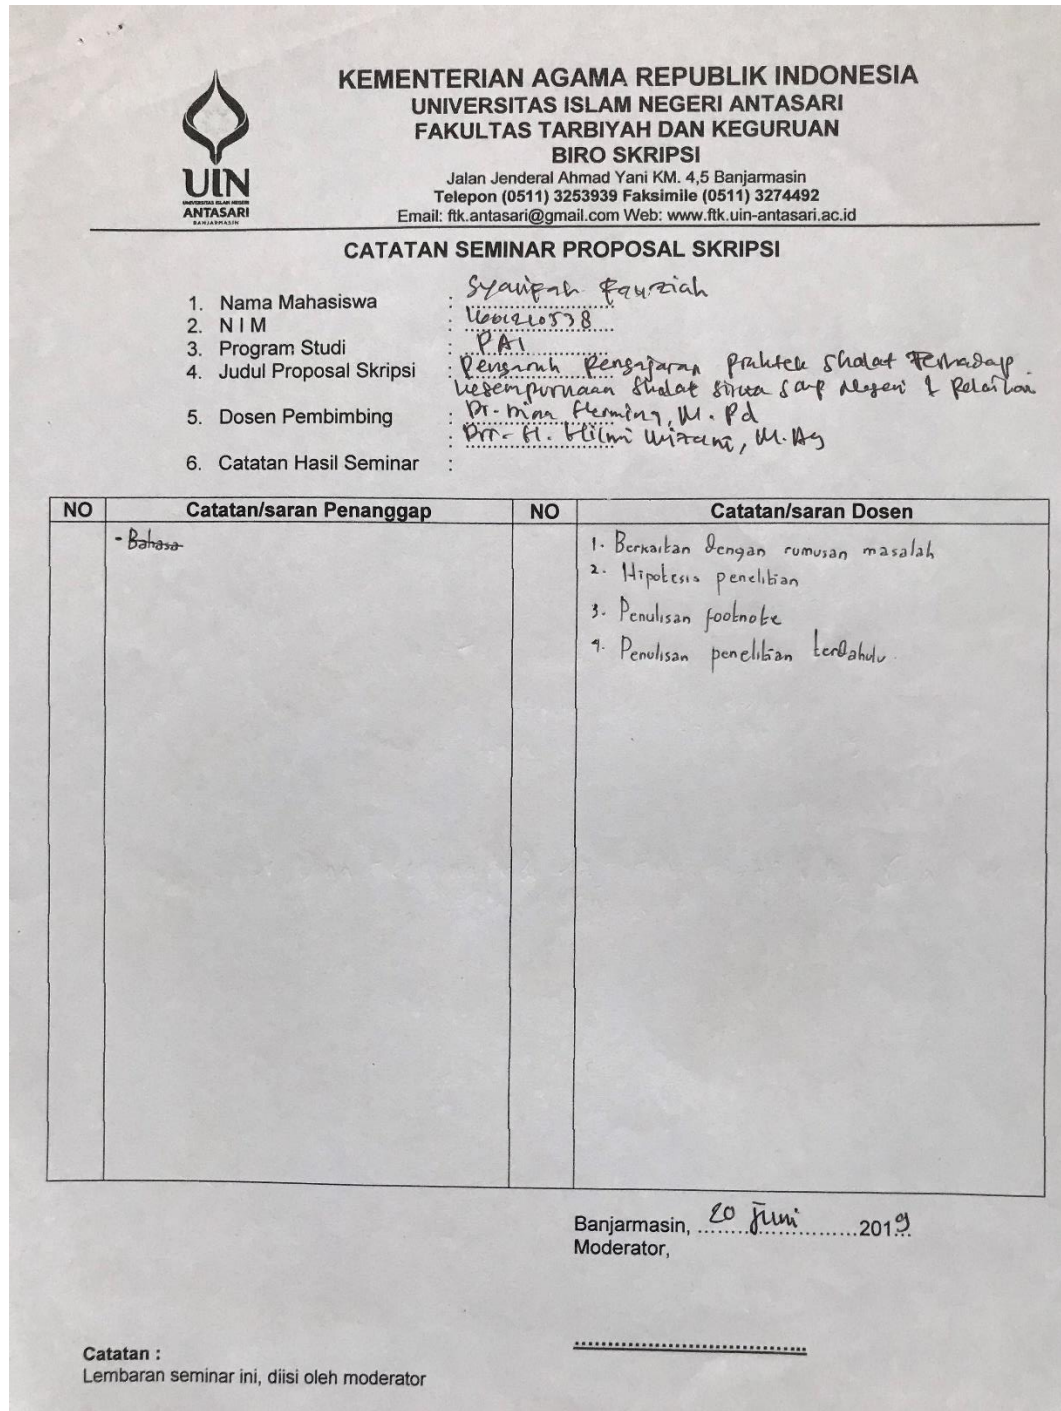 KEMENTERIAN AGAMA REPUBLIK INDONESIA
UNIVERSITAS ISLAM NEGERI ANTASARI
FAKULTAS TARBIYAH DAN KEGURUAN
BIRO SKRIPSI
Jalan Jenderal Ahmad Yani KM. 4,5 Banjarmasin
Telepon (0511) 3253939 Faksimile (0511) 3274492
Email: ftk.antasari@gmail.com Web: www.ftk.uin-antasari.ac.id
UIN
UNIVERSITAS ISLAM NEGERI
ANTASARI
BANJARMASIN
CATATAN SEMINAR PROPOSAL SKRIPSI
1. Nama Mahasiswa : Syarifah Fauziah
2. N I M : 1601210538
3. Program Studi : PAI
4. Judul Proposal Skripsi : Pengaruh Pengajaran praktek Sholat Terhadap
kesempurnaan Sholat siswa Negeri 1 Pelaihari
5. Dosen Pembimbing : Dr. M. Pd
: Drr. H. Hilmi Mizani, M. Ag
6. Catatan Hasil Seminar :
NO Catatan/saran Penanggap NO Catatan/saran Dosen
- Bahasa
1. Berkaitan dengan rumusan masalah
2. Hipotesis penelitian
3. Penulisan footnote
4. Penulisan penelitian terdahulu.
Banjarmasin, 20 Juni 2019
Moderator,
Catatan :
Lembaran seminar ini, diisi oleh moderator